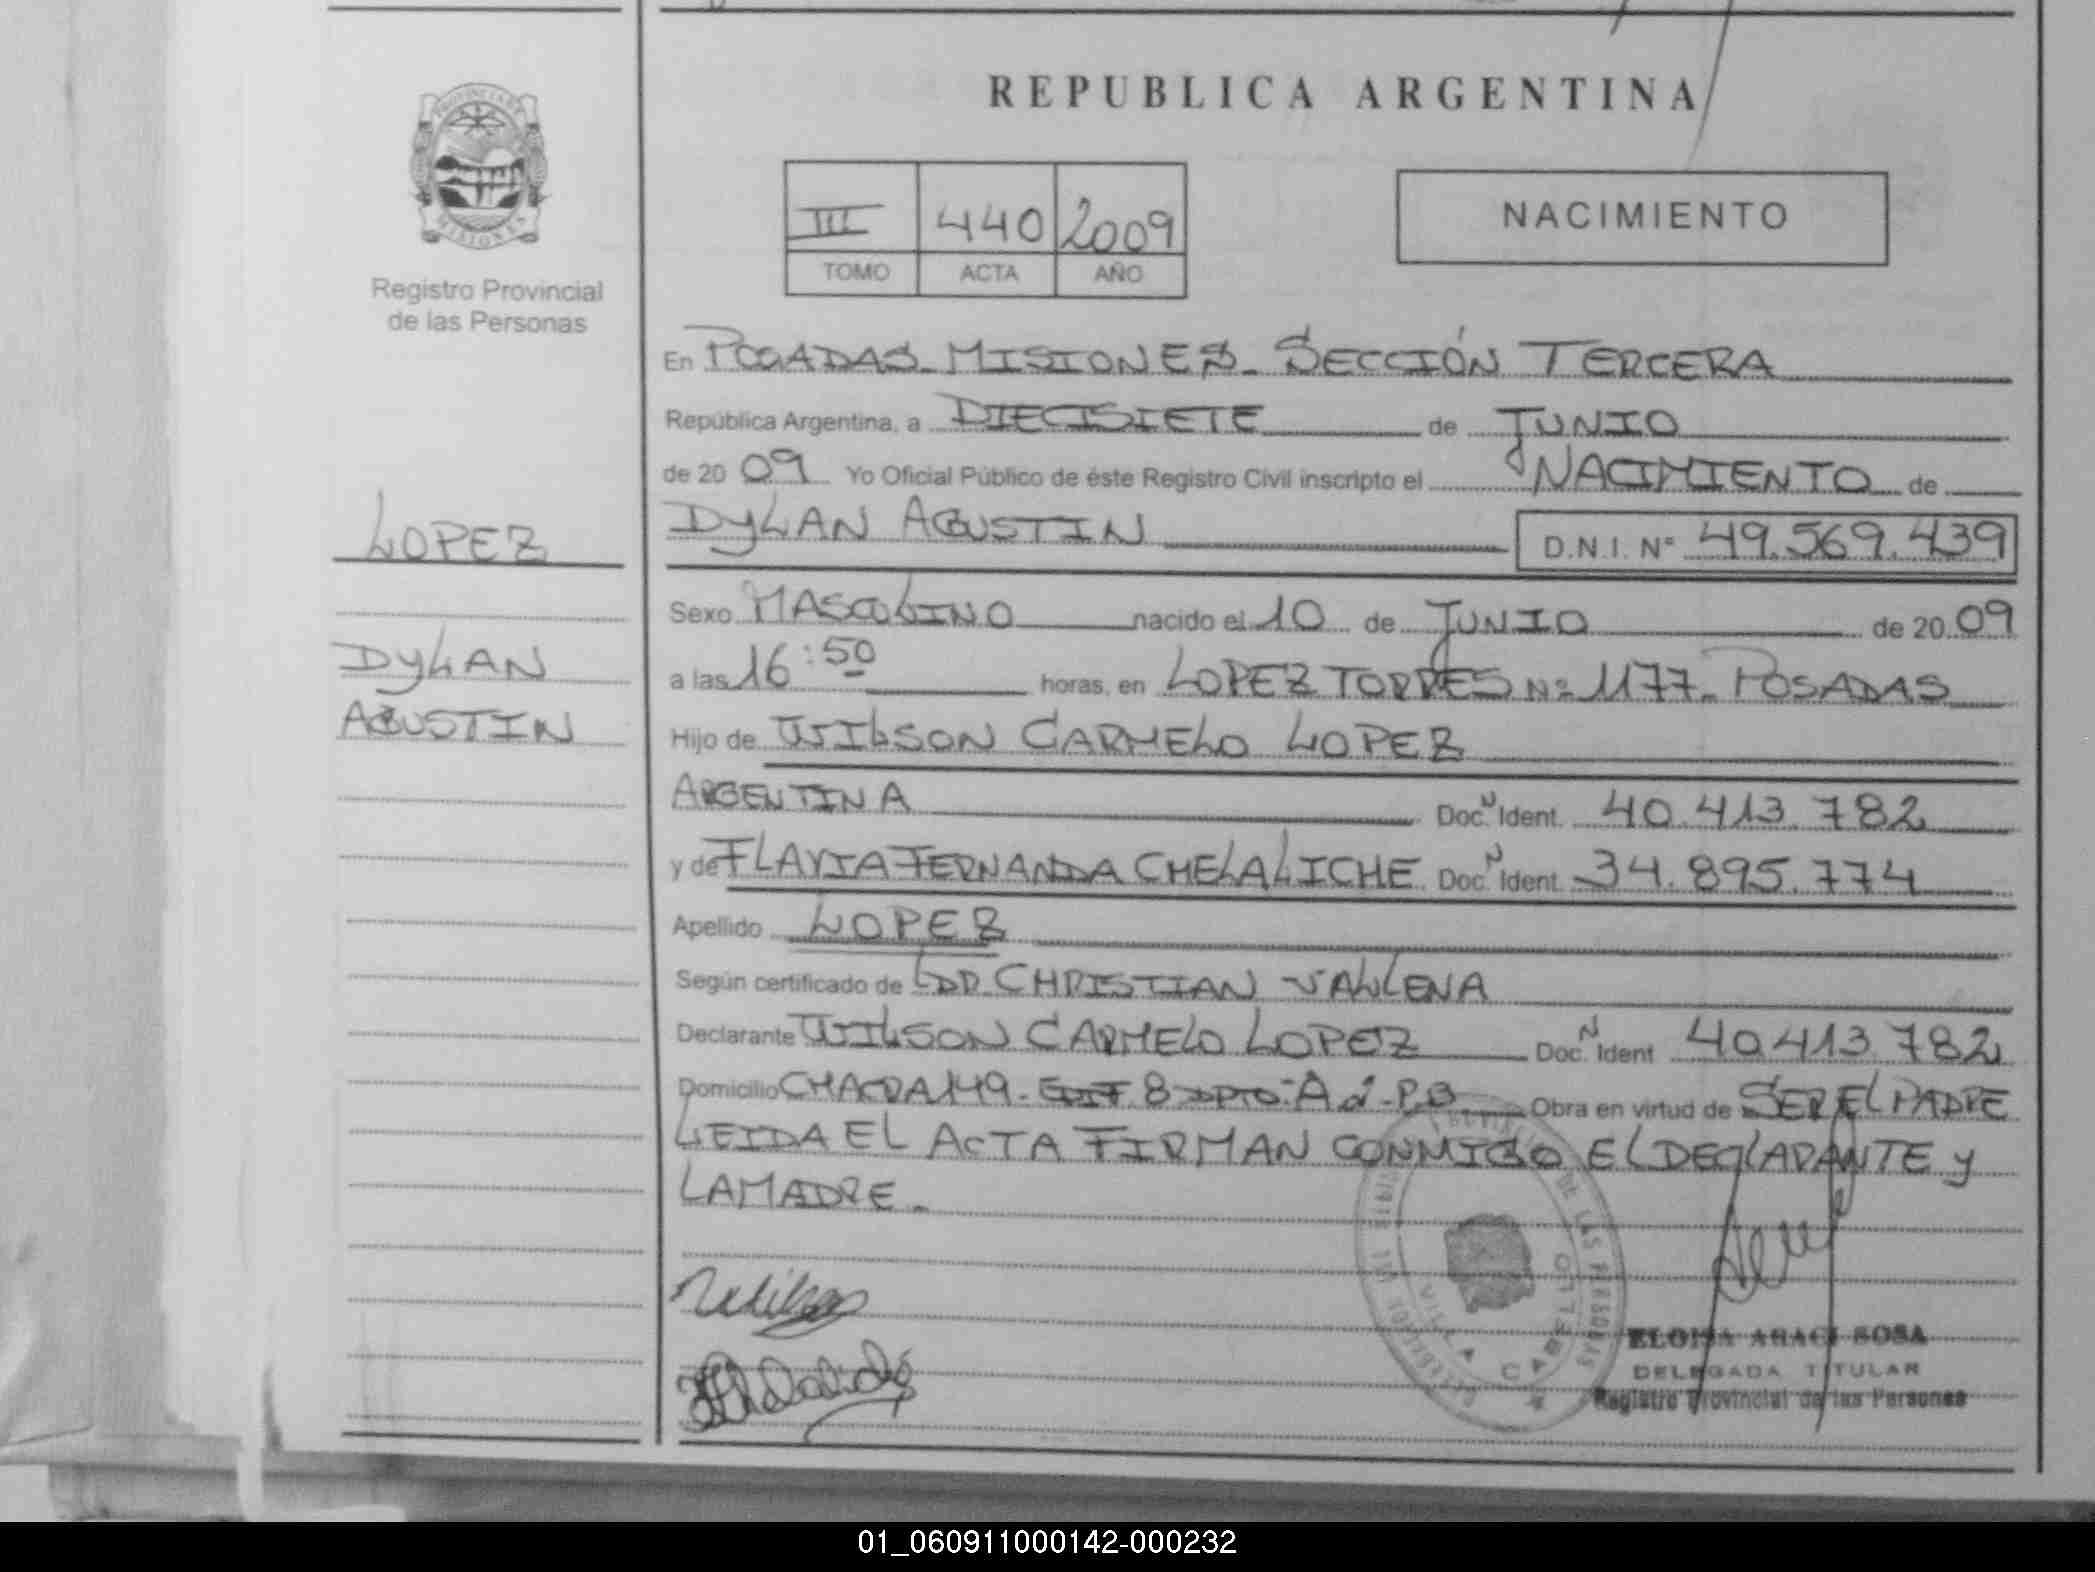 REPUBLICA ARGENTINA
PROVINCIA DE
MISIONES
Registro Provincial
de las Personas
III 440 2009
TOMO ACTA AÑO
NACIMIENTO
En POSADAS - MISIONES - SECCIÓN TERCERA
República Argentina, a DIECISIETE de JUNIO
de 20 09 Yo Oficial Público de éste Registro Civil inscripto el NACIMIENTO de
DYLAN AGUSTIN D.N.I. Nº 49.569.439
LOPEZ
DYLAN
AGUSTIN
Sexo MASCULINO nacido el 10 de JUNIO de 20 09
a las 16:50 horas, en LOPEZ TORRES Nº 1177 - POSADAS
Hijo de WILSON CARMELO LOPEZ
ARGENTINA Doc. N Ident. 40.413.782
y de FLAVIA FERNANDA CHELALICHE Doc. N Ident. 34.895.774
Apellido LOPEZ
Según certificado de DR CHRISTIAN VALLENA
Declarante WILSON CARMELO LOPEZ Doc. N Ident 40.413.782
Domicilio CHACRA 149 - EDIF 8 DPTO: A - P B Obra en virtud de SER EL PADRE
LEIDA EL ACTA FIRMAN CONMIGO EL DECLARANTE y
LA MADRE -
DE LAS PERSONAS
VILLA CABELLO
ELOISA ARACI SOSA
DELEGADA TITULAR
Registro Provincial de las Personas
01_060911000142-000232